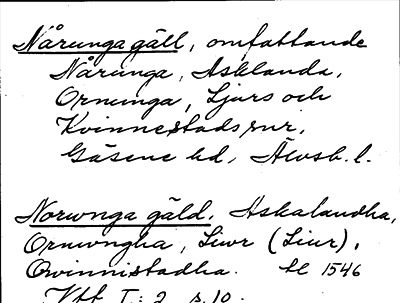 Nårunga gäll, omfattande
Nårunga, Asklanda,
Ornunga, Ljurs och
Kvinnestads snr,
Gäsene hd, Älvsb. l.
Norwnga gäld, Askalandha,
Ornwngha, Liwr (Liur),
Qwinnistadha. Sl 1546
Vff I: 2 s. 10.